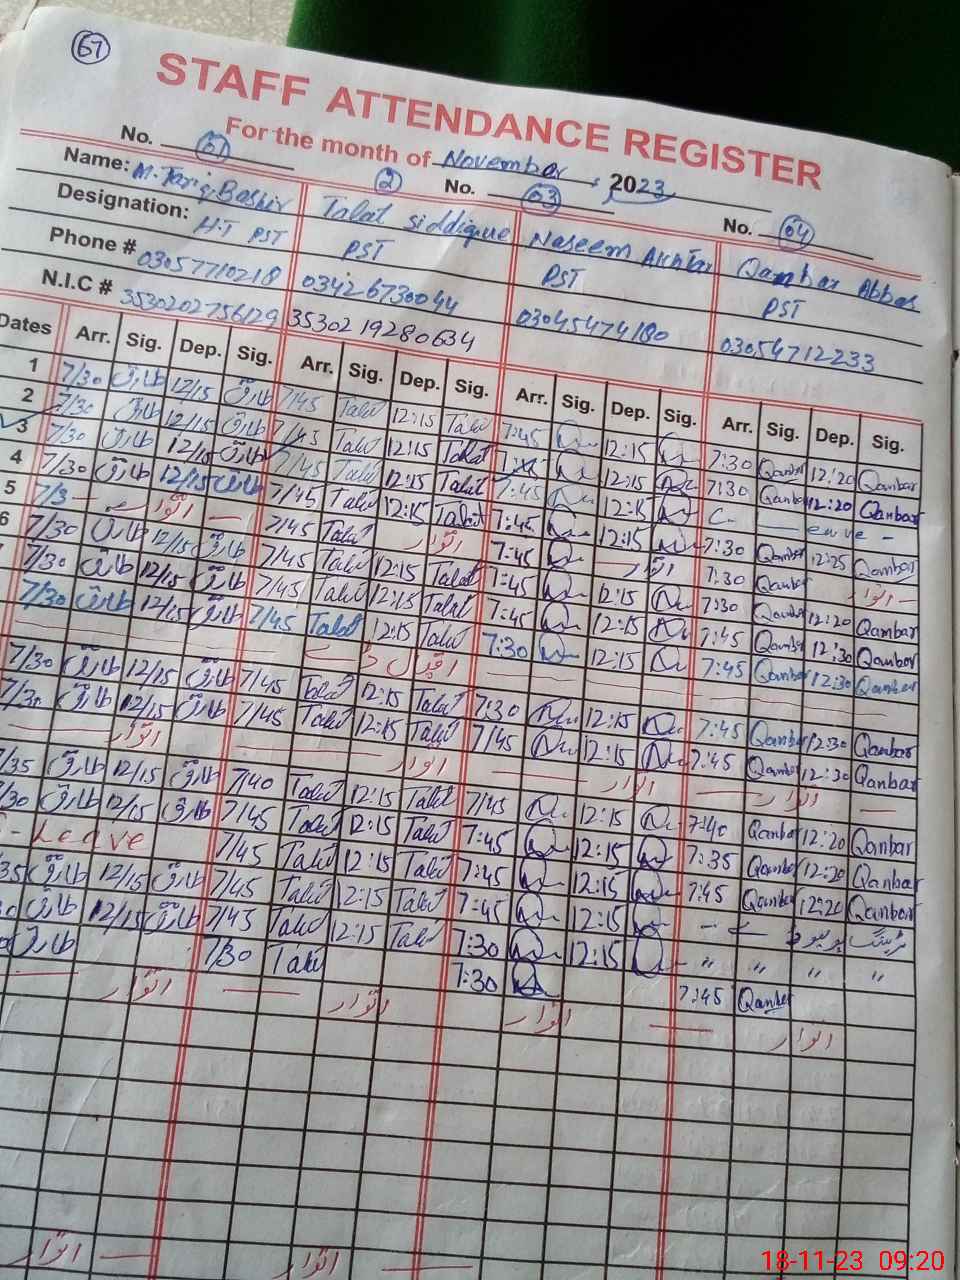 67
STAFF ATTENDANCE REGISTER
For the month of November, 2023
No. 01 2 No. 03 No. 04
Name: M. Tariq Bashir Talat Siddique Naseem Akhtar Qambar Abbas
Designation: H.T PST PST PST PST
Phone # 03057710218 03426730044 03045474180 03054712233
N.I.C # 3530202756129 35302 19280634
Dates Arr. Sig. Dep. Sig. Arr. Sig. Dep. Sig. Arr. Sig. Dep. Sig. Arr. Sig. Dep. Sig.
1 7/30 طارق 12/15 طارق 7/45 Talat 12:15 Talat 7:45 12:15 7:30 Qambar 12:20 Qambar
2 7/30 طارق 12/15 طارق 7/45 Talat 12:15 Talat 7:45 12:15 7:30 Qambar 12:20 Qambar
3 7/30 طارق 12/15 طارق 7/45 Talat 12:15 Talat 7:45 12:15
4 7/30 طارق 12/15 طارق 7/45 Talat 12:15 Talat 7:45 12:15 7:30 Qambar 12:25 Qambar
5 7/3 اتوار 7/45 Talat اتوار 7:45 اتوار 7:30 Qambar اتوار
6 7/30 طارق 12/15 طارق 7/45 Talat 12:15 Talat 7:45 12:15 7:30 Qambar 12:20 Qambar
7/30 طارق 12/15 طارق 7/45 Talat 12:15 Talat 7:45 12:15 7:45 Qambar 12:30 Qambar
7/30 طارق 12/15 طارق 7/45 Talat 12:15 Talat 7:30 12:15 7:45 Qambar 12:30 Qambar
اقبال ڈے
7/30 طارق 12/15 طارق 7/45 Talat 12:15 Talat 7:30 12:15 7:45 Qambar 12:30 Qambar
7/30 طارق 12/15 طارق 7/45 Talat 12:15 Talat 7/45 12:15 7:45 Qambar 12:30 Qambar
اتوار اتوار اتوار اتوار
7/35 طارق 12/15 طارق 7/40 Talat 12:15 Talat 7/45 12:15 7:40 Qambar 12:20 Qambar
7/30 طارق 12/15 طارق 7/45 Talat 12:15 Talat 7:45 12:15 7:35 Qambar 12:20 Qambar
Leave 7/45 Talat 12:15 Talat 7:45 12:15 7:45 Qambar 12:20 Qambar
35 طارق 12/15 طارق 7/45 Talat 12:15 Talat 7:45 12:15
طارق 12/15 طارق 7/45 Talat 12:15 Talat 7:30 12:15 " " " "
طارق 7/30 Talat 7:30 7:45 Qambar
اتوار اتوار اتوار اتوار
اتوار اتوار
18-11-23 09:20